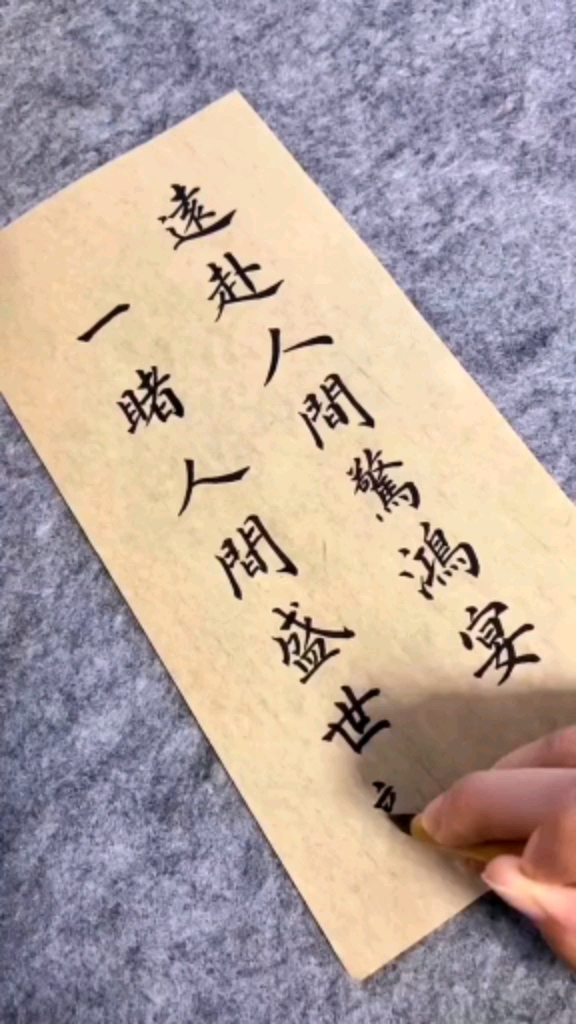 遠赴人間驚鴻宴
一睹人間盛世